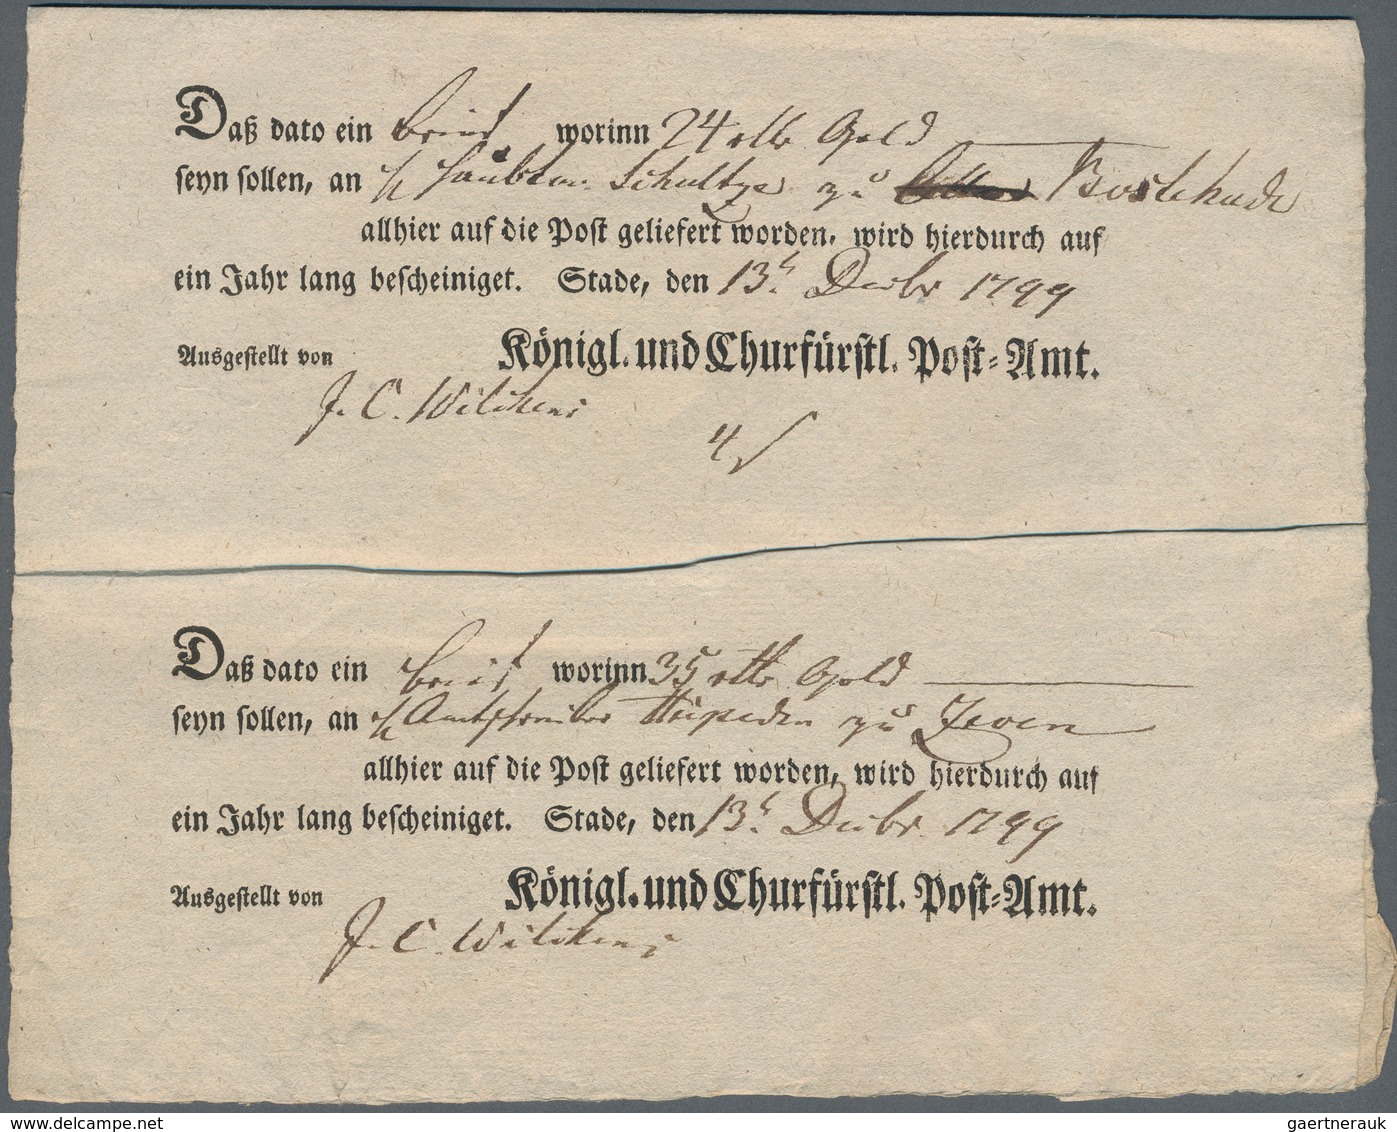 Daß dato ein Brief worinn 24 rthr Gold
seyn sollen, an H Haubtm. Schultze zu Boxtehude
allhier auf die Post geliefert worden, wird hierdurch auf
ein Jahr lang bescheiniget. Stade, den 13t. Decbr 1799
Ausgestellt von Königl. und Churfürstl. Post-Amt.
J. C. Wilckens
4
Daß dato ein Brief worinn 35 rthr Gold
seyn sollen, an H Amtschreiber zu Zeven
allhier auf die Post geliefert worden, wird hierdurch auf
ein Jahr lang bescheiniget. Stade, den 13t. Decbr. 1799
Ausgestellt von Königl. und Churfürstl. Post-Amt.
J. C. Wilckens
www.delcampe.net
gaertnerauk